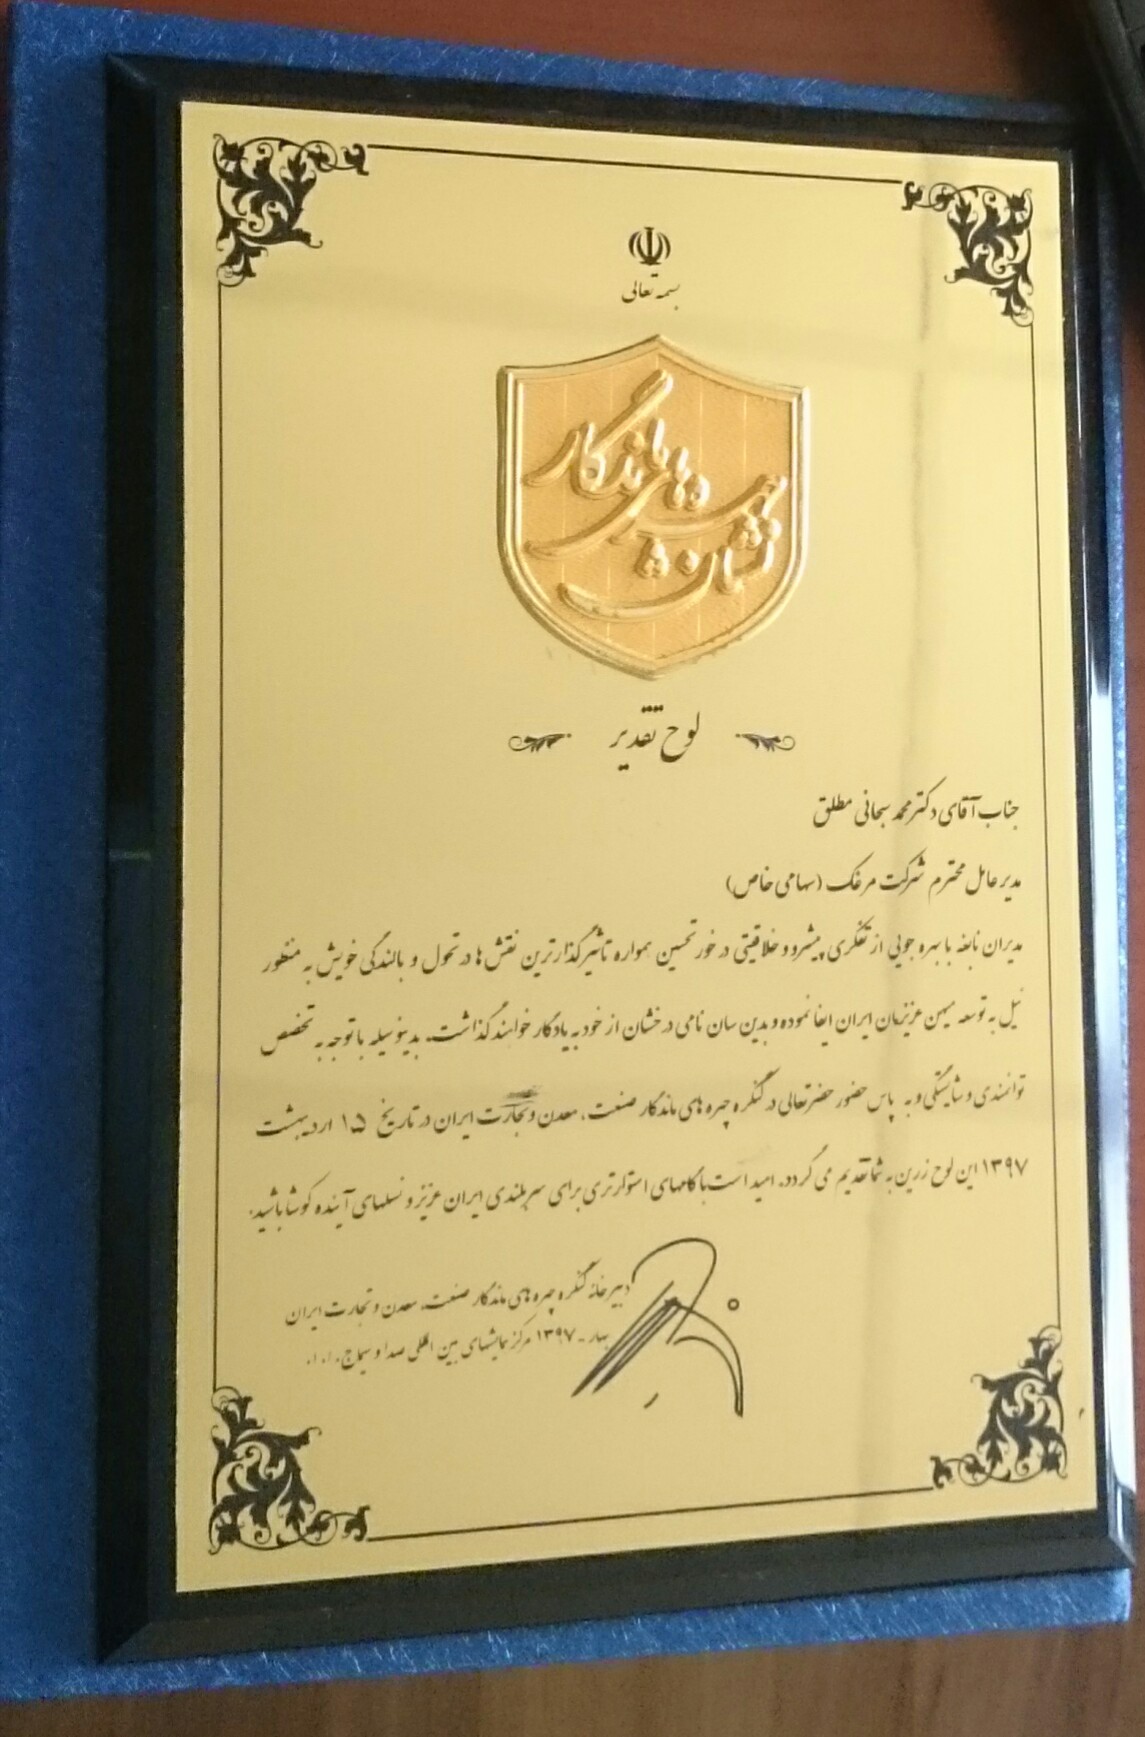 بسمه تعالی
نشان چهره‌های ماندگار
لوح تقدیر
جناب آقای دکتر محمد سبحانی مطلق
مدیر عامل محترم شرکت مرغک (سهامی خاص)
مدیران نابغه با بهره جویی از تفکری پیشرو و خلاقیتی در خور تحسین همواره تاثیرگذارترین نقش ها در تحول و بالندگی خویش به منظور
نیل به توسعه میهن عزیزمان ایران ایفا نموده و بدین سان نامی درخشان از خود به یادگار خواهند گذاشت. بدینوسیله با توجه به تخصص
توانمندی و شایستگی و به پاس حضور حضرتعالی در کنگره چهره های ماندگار صنعت، معدن و تجارت ایران در تاریخ ۱۵ اردیبهشت
۱۳۹۷ این لوح زرین به شما تقدیم می گردد. امید است با گامهای استوارتری برای سربلندی ایران عزیز و نسلهای آینده کوشا باشید.
دبیرخانه کنگره چهره های ماندگار صنعت، معدن و تجارت ایران
بهار - ۱۳۹۷ مرکز همایشهای بین المللی صدا و سیما